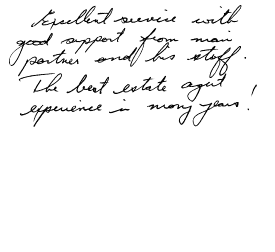 Excellent service with
good support from main
partner and his staff.
The best estate agent
experience in many years!